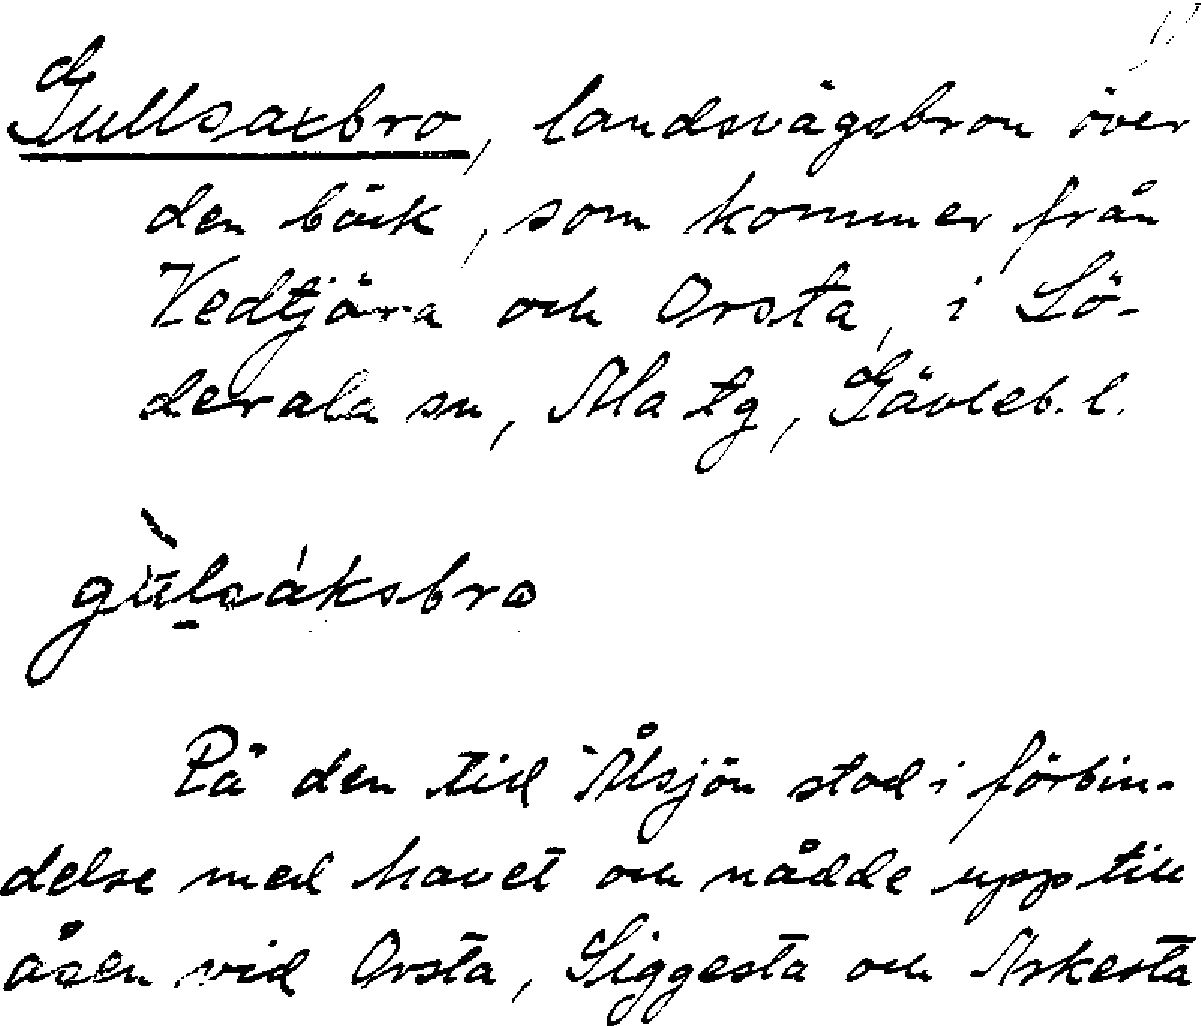 Gullsaxbro, landsvägsbron över
den bäck, som kommer från
Vedtjära och Orsta, i Sö-
derala sn, Ala tg, Gävleb. l.
gùlsáksbro
På den tid Ålsjön stod i förbin-
delse med havet och nådde upp till
åsen vid Orsta, Siggesta och Askesta